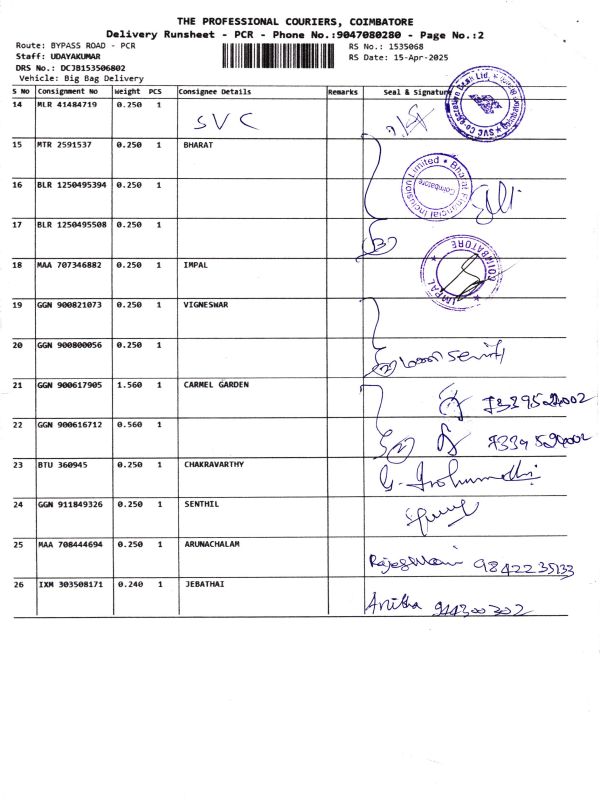 THE PROFESSIONAL COURIERS, COIMBATORE
Delivery Runsheet - PCR - Phone No.:9047080280 - Page No.:2
Route: BYPASS ROAD - PCR RS No.: 1535068
Staff: UDAYAKUMAR RS Date: 15-Apr-2025
DRS No.: DCJB153506802
Vehicle: Big Bag Delivery
S No Consignment No Weight PCS Consignee Details Remarks Seal & Signature
14 MLR 41484719 0.250 1 SVC
15 MTR 2591537 0.250 1 BHARAT
16 BLR 1250495394 0.250 1
Bharat Financial Inclusion Limited Coimbatore
17 BLR 1250495508 0.250 1 3
18 MAA 707346882 0.250 1 IMPAL
IMPAL COIMBATORE
19 GGN 900821073 0.250 1 VIGNESWAR
20 GGN 900800056 0.250 1 2
21 GGN 900617905 1.560 1 CARMEL GARDEN
22 GGN 900616712 0.560 1 2
23 BTU 360945 0.250 1 CHAKRAVARTHY
24 GGN 911849326 0.250 1 SENTHIL
25 MAA 708444694 0.250 1 ARUNACHALAM 98422 35133
26 IXM 303508171 0.240 1 JEBATHAI Anitha 944300302